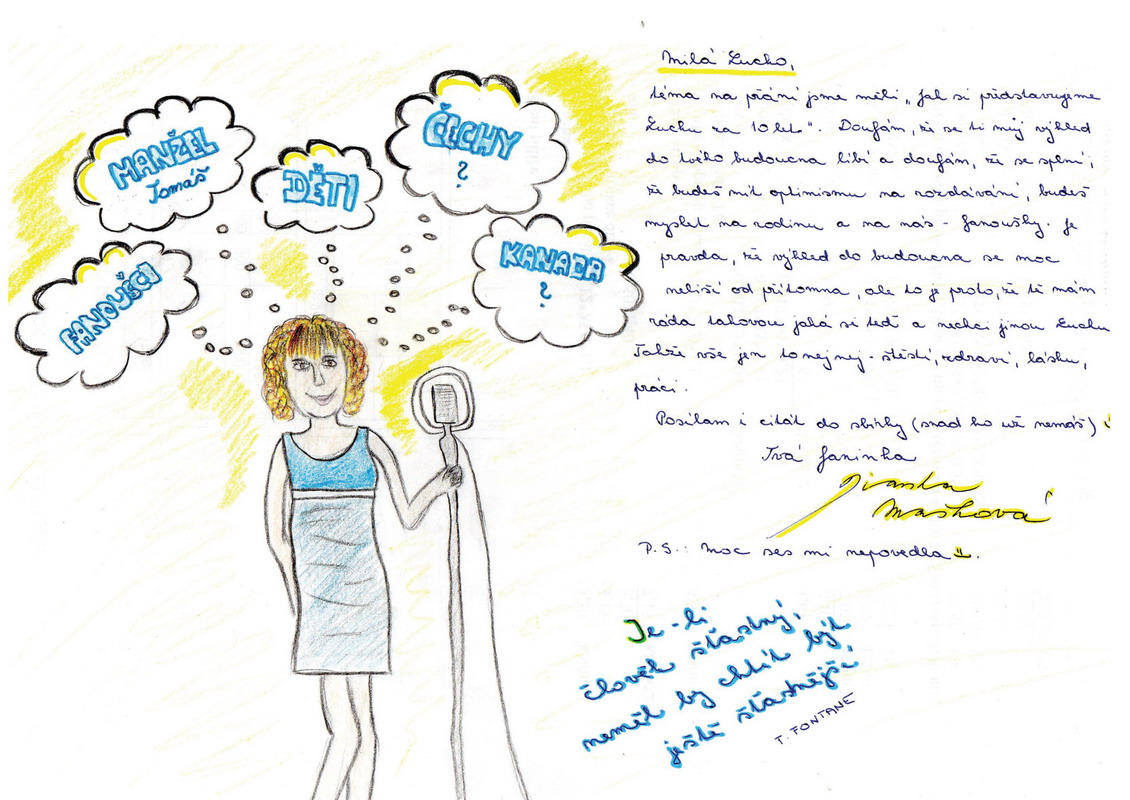 MANŽEL
Tomáš
DĚTI
ČECHY
?
FANOUŠCI
KANADA
?
Milá Lucko,
téma na přání jsme měli „Jak si představujeme
Lucku za 10 let“. Doufám, že se ti můj výhled
do tvého budoucna líbí a doufám, že se splní,
že budeš mít optimismu na rozdávání, budeš
myslet na rodinu a na nás - fanoušky. Je
pravda, že výhled do budoucna se moc
neliší od přítomna, ale to je proto, že tě mám
ráda takovou jaká si teď a nechci jinou Lucku
Takže vše jen to nejnej - štěstí, zdraví, lásku,
práci.
Posílám i citát do sbírky (snad ho už nemáš)
Tvá Janinka
Mašková
P.S.: Moc ses mi nepovedla
Je-li
člověk šťastný,
neměl by chtít být
ještě šťastnější
T. FONTANE